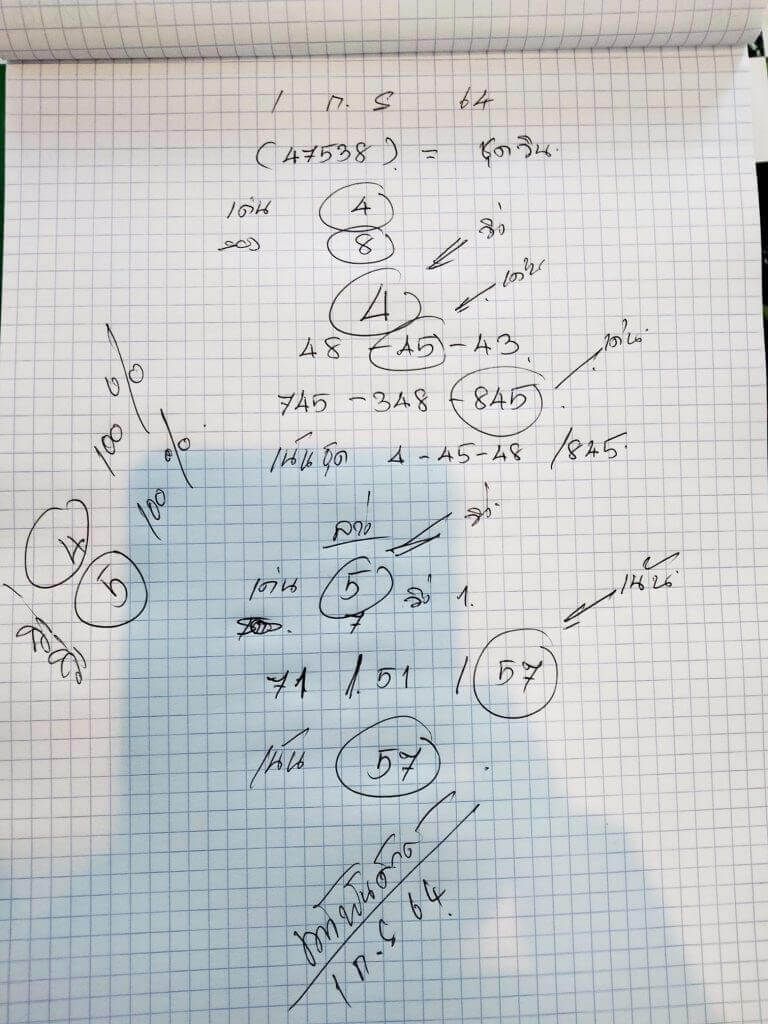 1 ก.ย 64
(47538) = ชุดวิน.
เด่น 4
รอง 8
วิ่ง
4
เด่น
48 - 45 - 43
เด่น
745 - 348 - 845
เน้นชุด 4 - 45 - 48 / 845.
100%
100%
4
5
ล่าง
วิ่ง
เด่น 5 วิ่ง 1.
7
เน้น
71 / 51 / 57
เน้น 57
1 ก.ย 64.